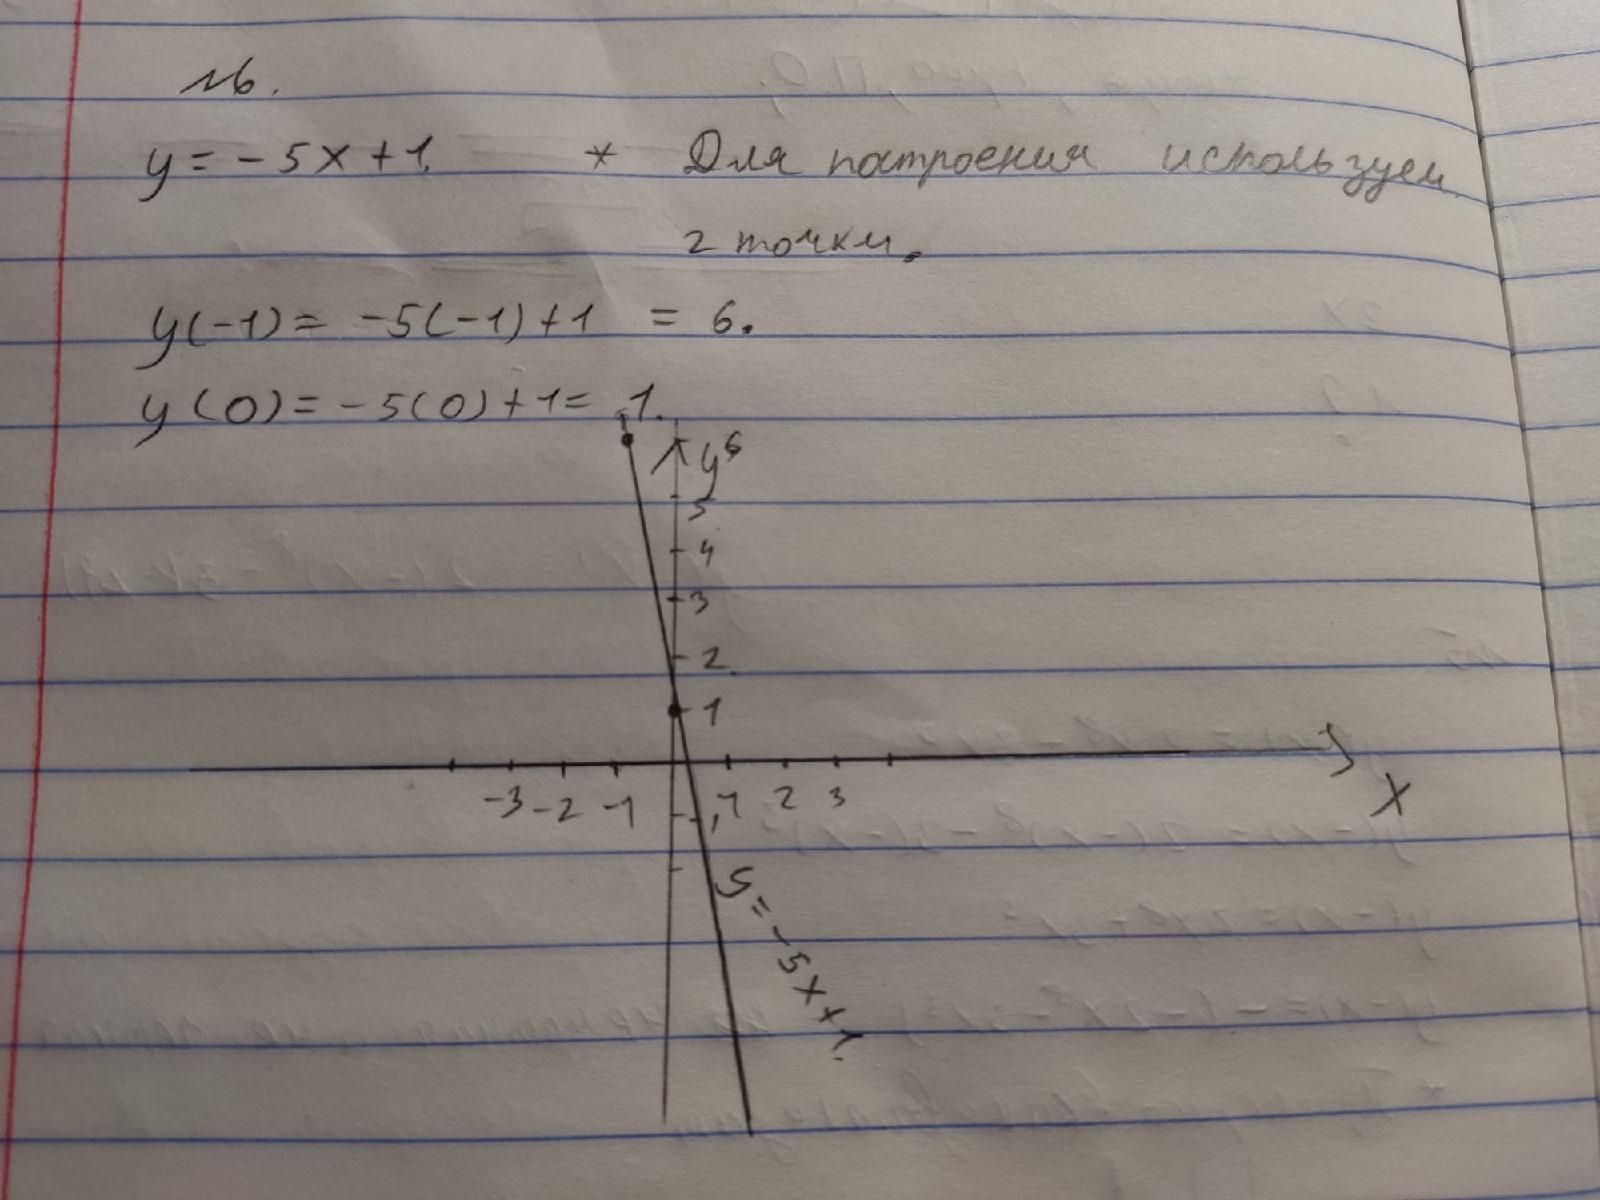 №6.
y = -5x + 1. * Для построения используем
2 точки.
y(-1) = -5(-1) + 1 = 6.
y(0) = -5(0) + 1 = 1.
y 6
5
4
3
2
1
-3 -2 -1 1 2 3
x
-1
y = -5x + 1.